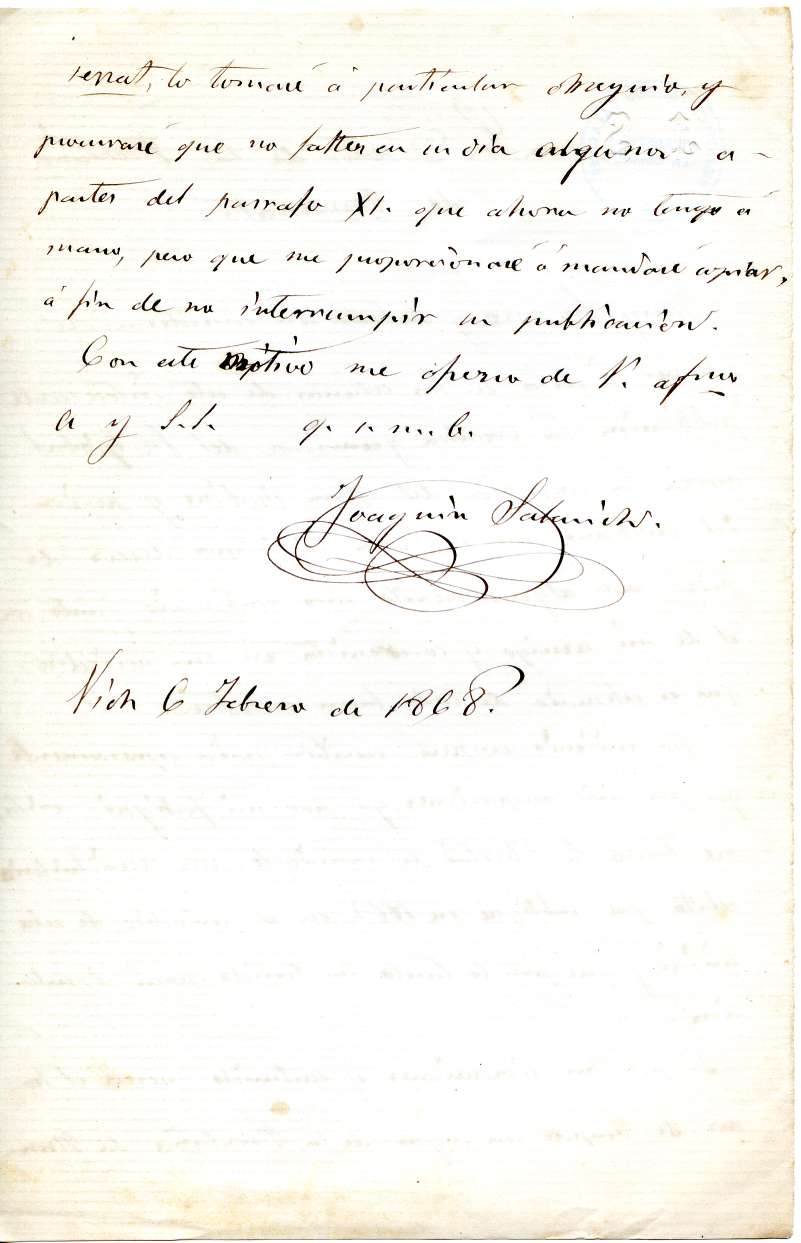 serrat, lo tomaré á particular obsequio, y
procuraré que no falten en su dia algunos a-
partes del parrafo XI. que ahora no tengo á
mano, pero que me proporcionaré ó mandaré copiar,
á fin de no interrumpir su publicacion.
Con este motivo me ofrezco de V. afmo
a y S.S. q. s. m. b.
Joaquin Salarich.
Vich 6 Febrero de 1868.